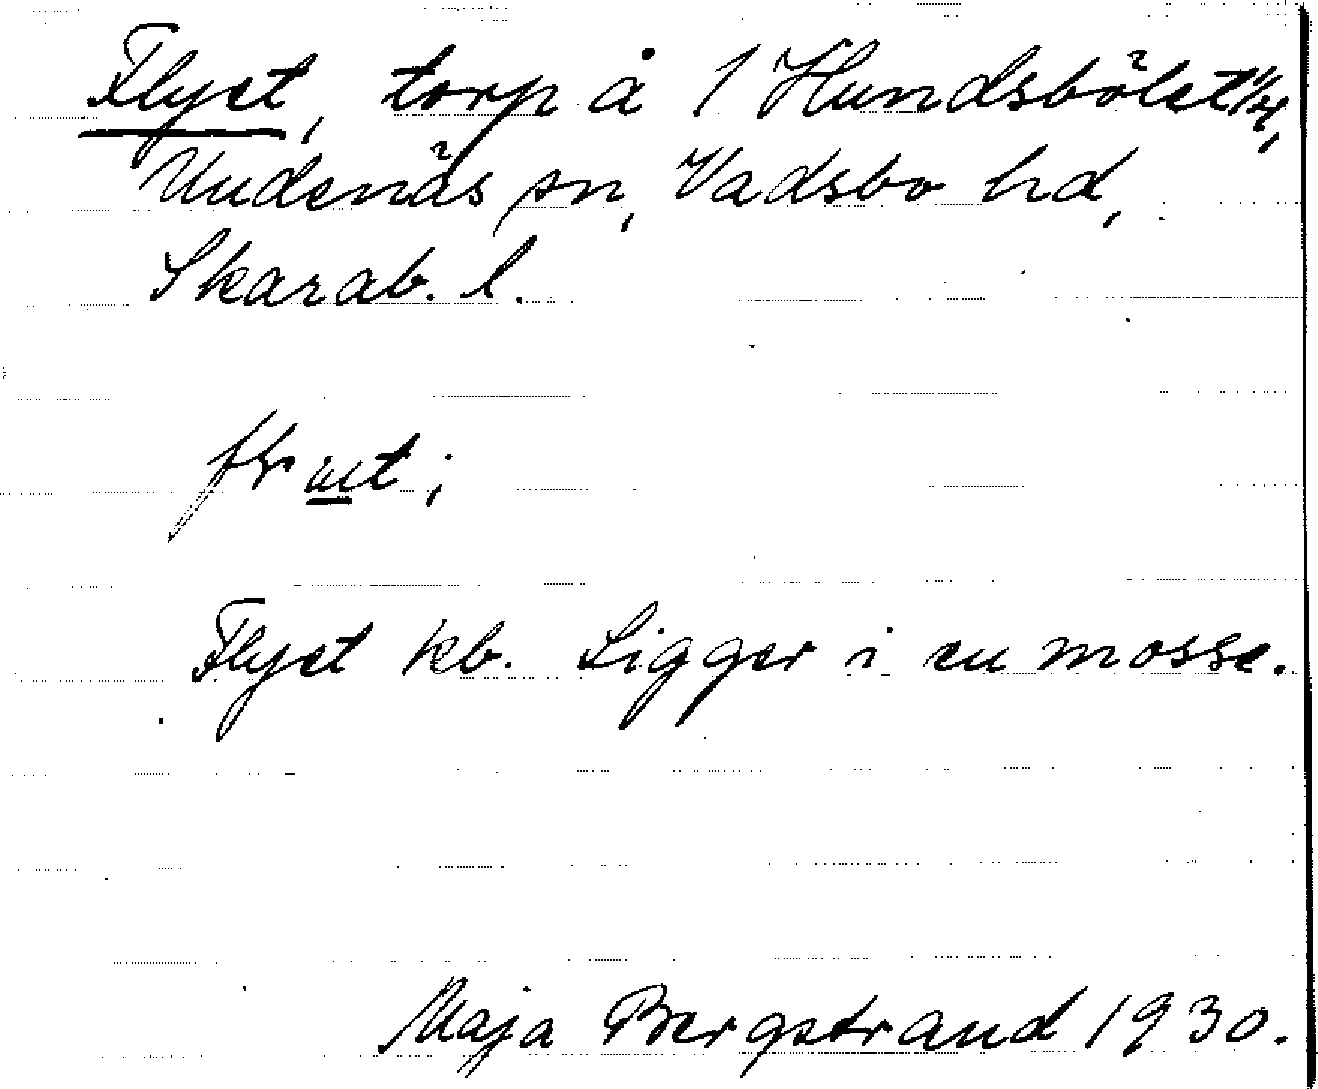 Flyet, torp å 1 Hundsbölet 1/4,
Undenäs sn, Vadsbo hd,
Skarab. l.
Flyet kb. Ligger i en mosse.
Maja Bergstrand 1930.